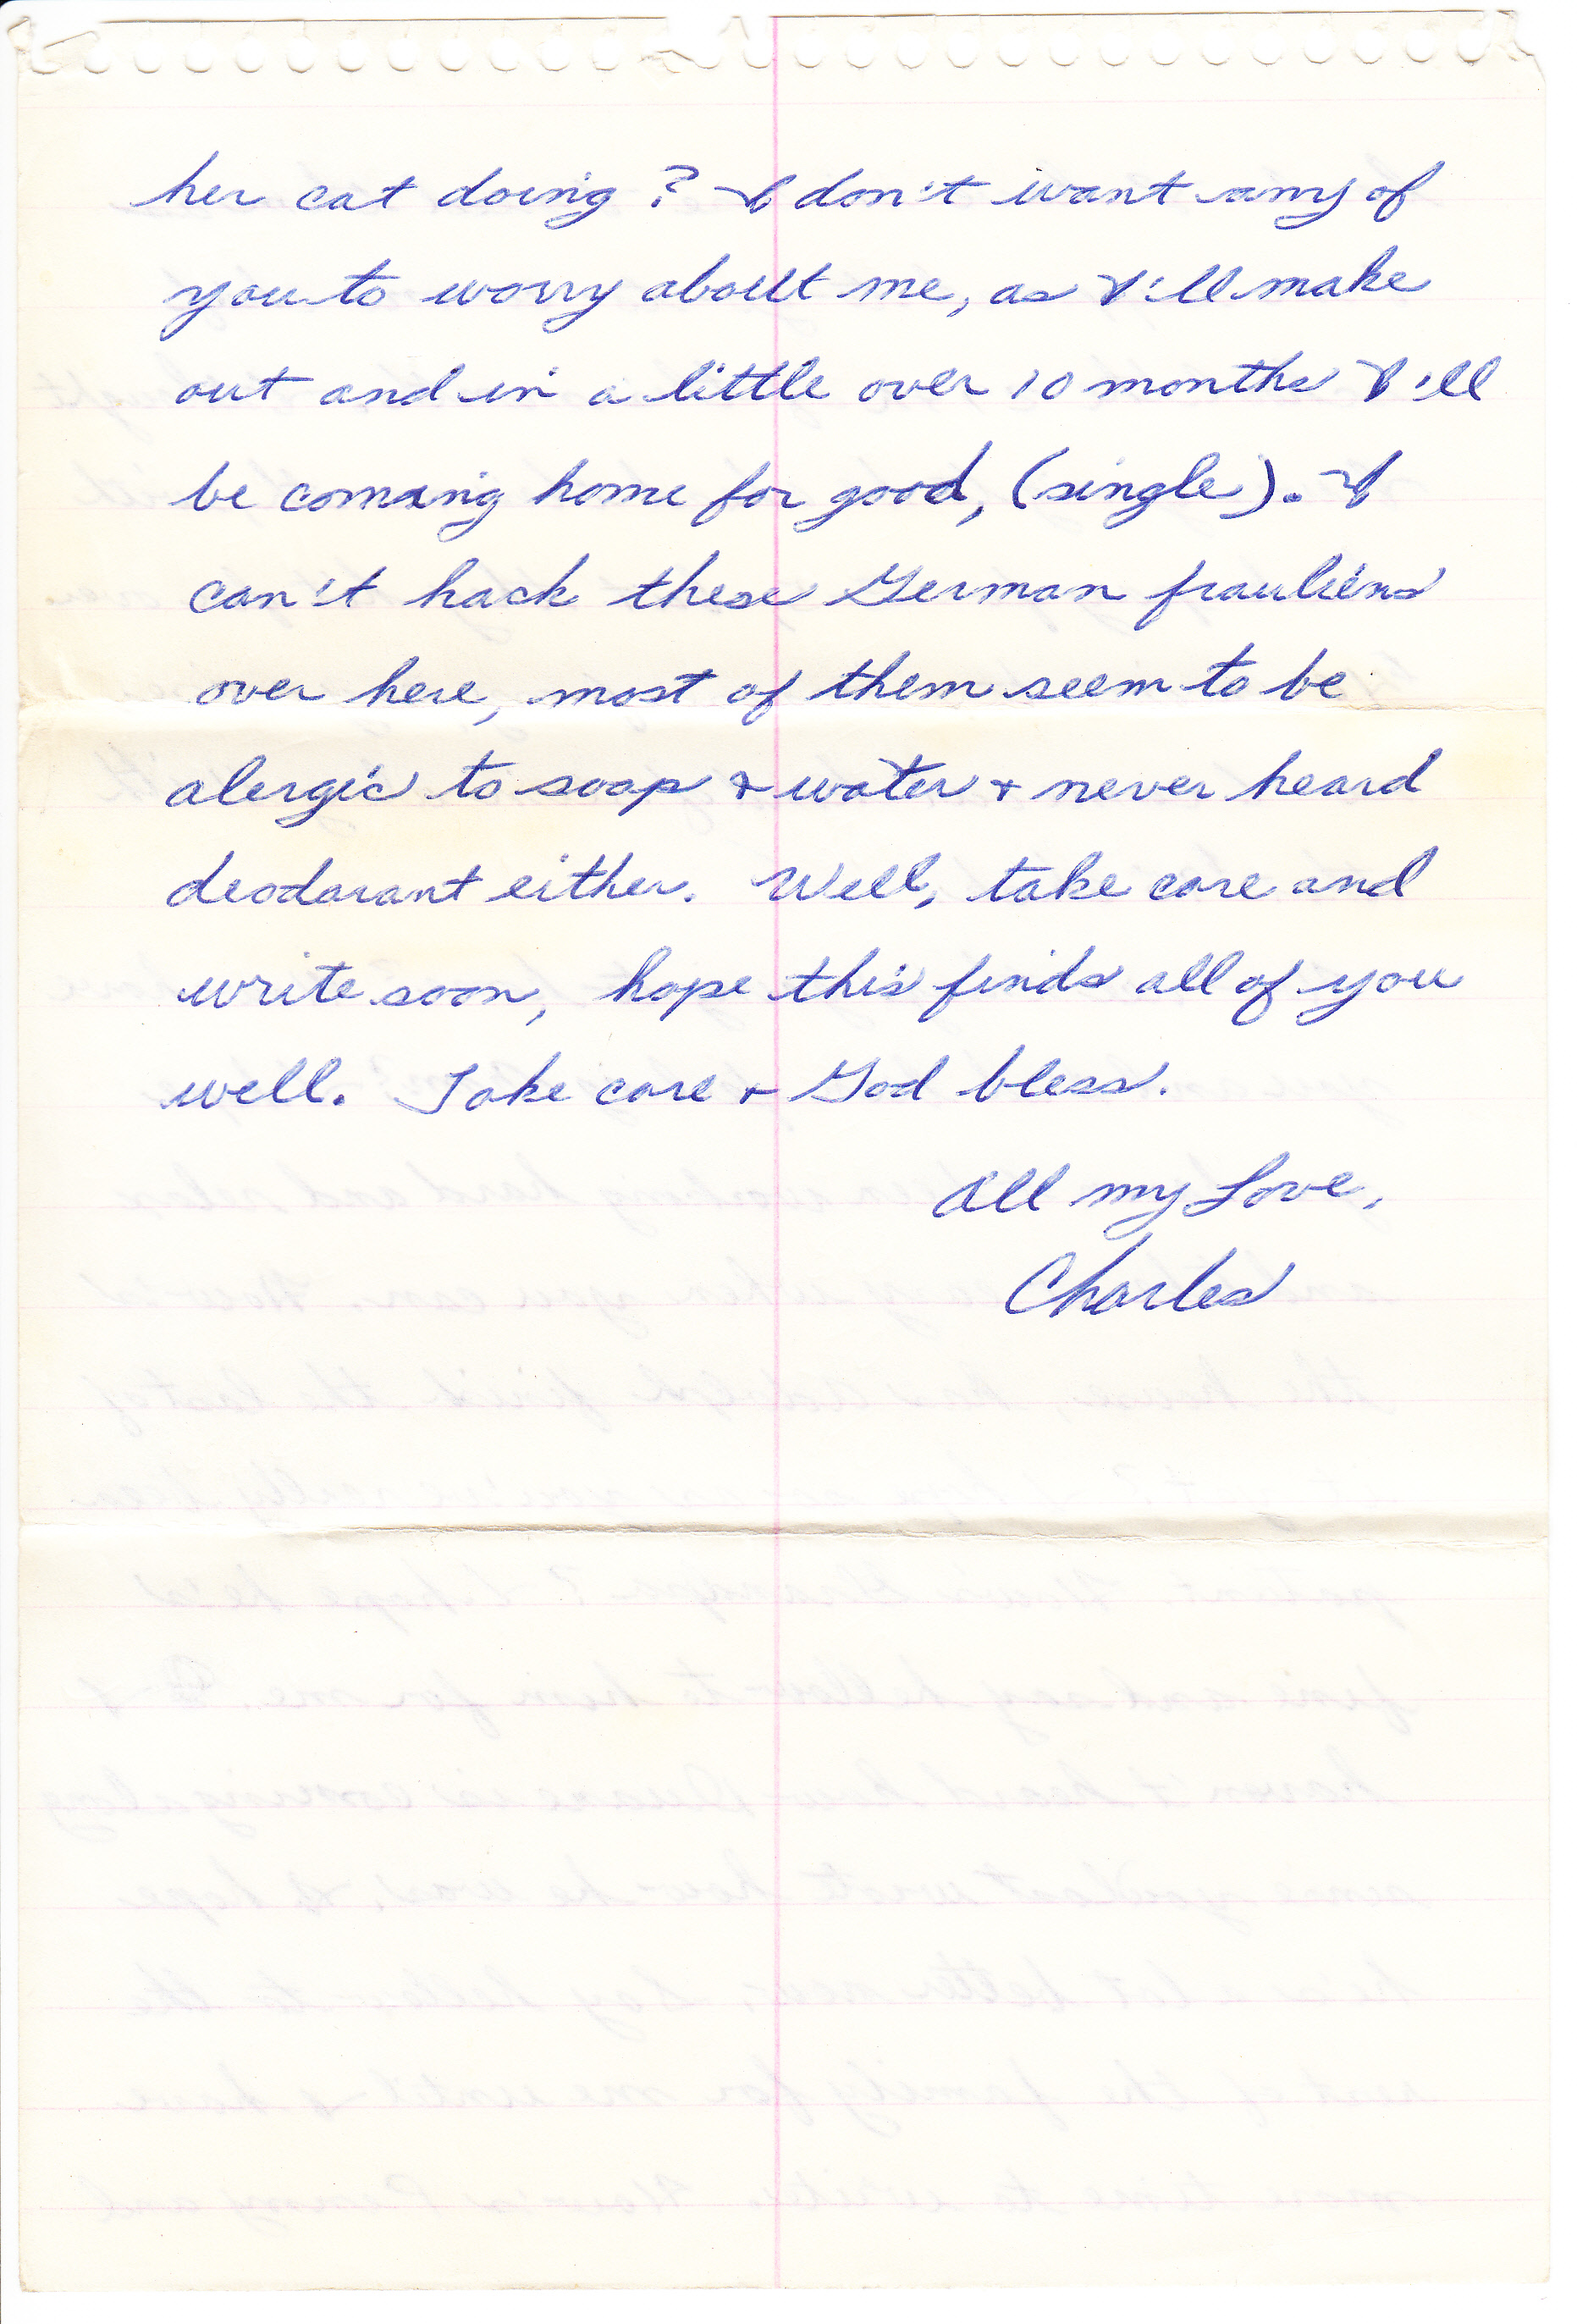 her cat doing? I don't want any of
you to worry about me, as I'll make
out and in a little over 10 months I'll
be coming home for good, (single). I
can't hack these German frauliens
over here, most of them seem to be
alergic to soap & water & never heard
deodarant either. Well, take care and
write soon, hope this finds all of you
well. Take care & God bless.
All my Love,
Charles